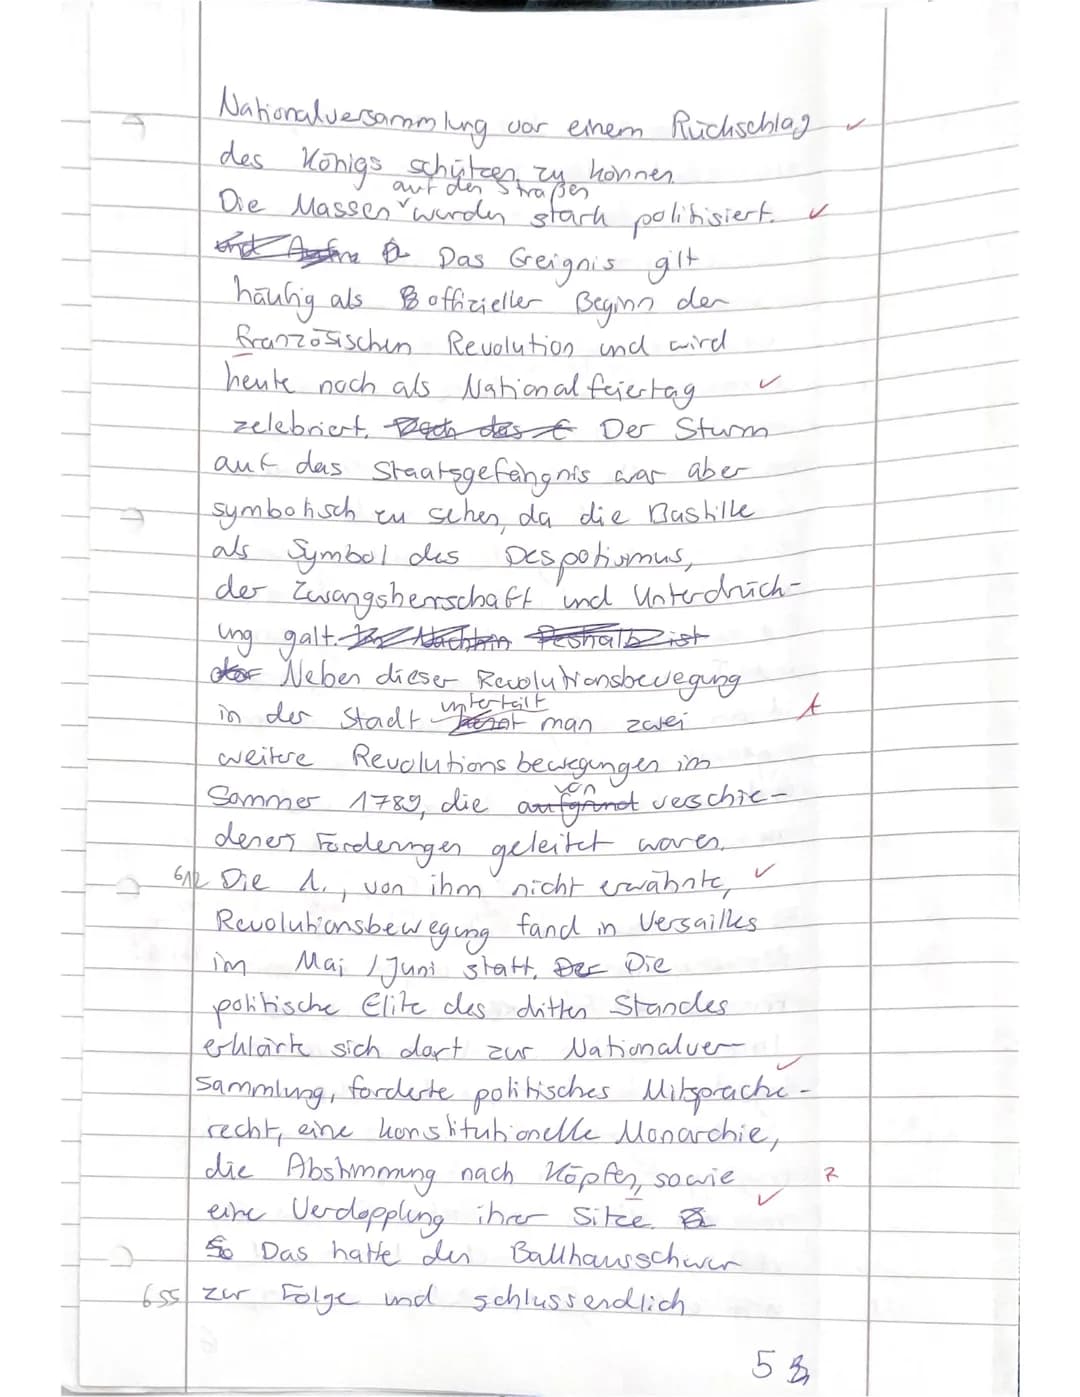 Nationalversammlung vor einem Rückschlag
des Königs schützen zu können.
auf den Straßen
Die Massen wurden stark politisiert.
und Das Ereignis gilt
häufig als offizieller Beginn der
französischen Revolution und wird
heute noch als Nationalfeiertag
zelebriert. Doch das Der Sturm
auf das Staatsgefängnis war aber
symbolisch zu sehen, da die Bastille
als Symbol des Despotismus,
der Zwangsherrschaft und Unterdrück-
ung galt. Deshalb ist
Neben dieser Revolutionsbewegung
unterteilt
in der Stadt man zwei
weitere Revolutionsbewegungen im
von
Sommer 1789, die aufgrund verschie-
denen Forderungen geleitet waren.
612 Die 1., von ihm nicht erwähnte,
Revolutionsbewegung fand in Versailles
im Mai / Juni statt. Der Die
politische Elite des dritten Standes
erklärte sich dort zur Nationalver-
sammlung, forderte politisches Mitsprache-
recht, eine konstitutionelle Monarchie,
die Abstimmung nach Köpfen, sowie
R
eine Verdopplung ihrer Sitze.
So Das hatte den Ballhausschwur
655 zur Folge und schlussendlich
5